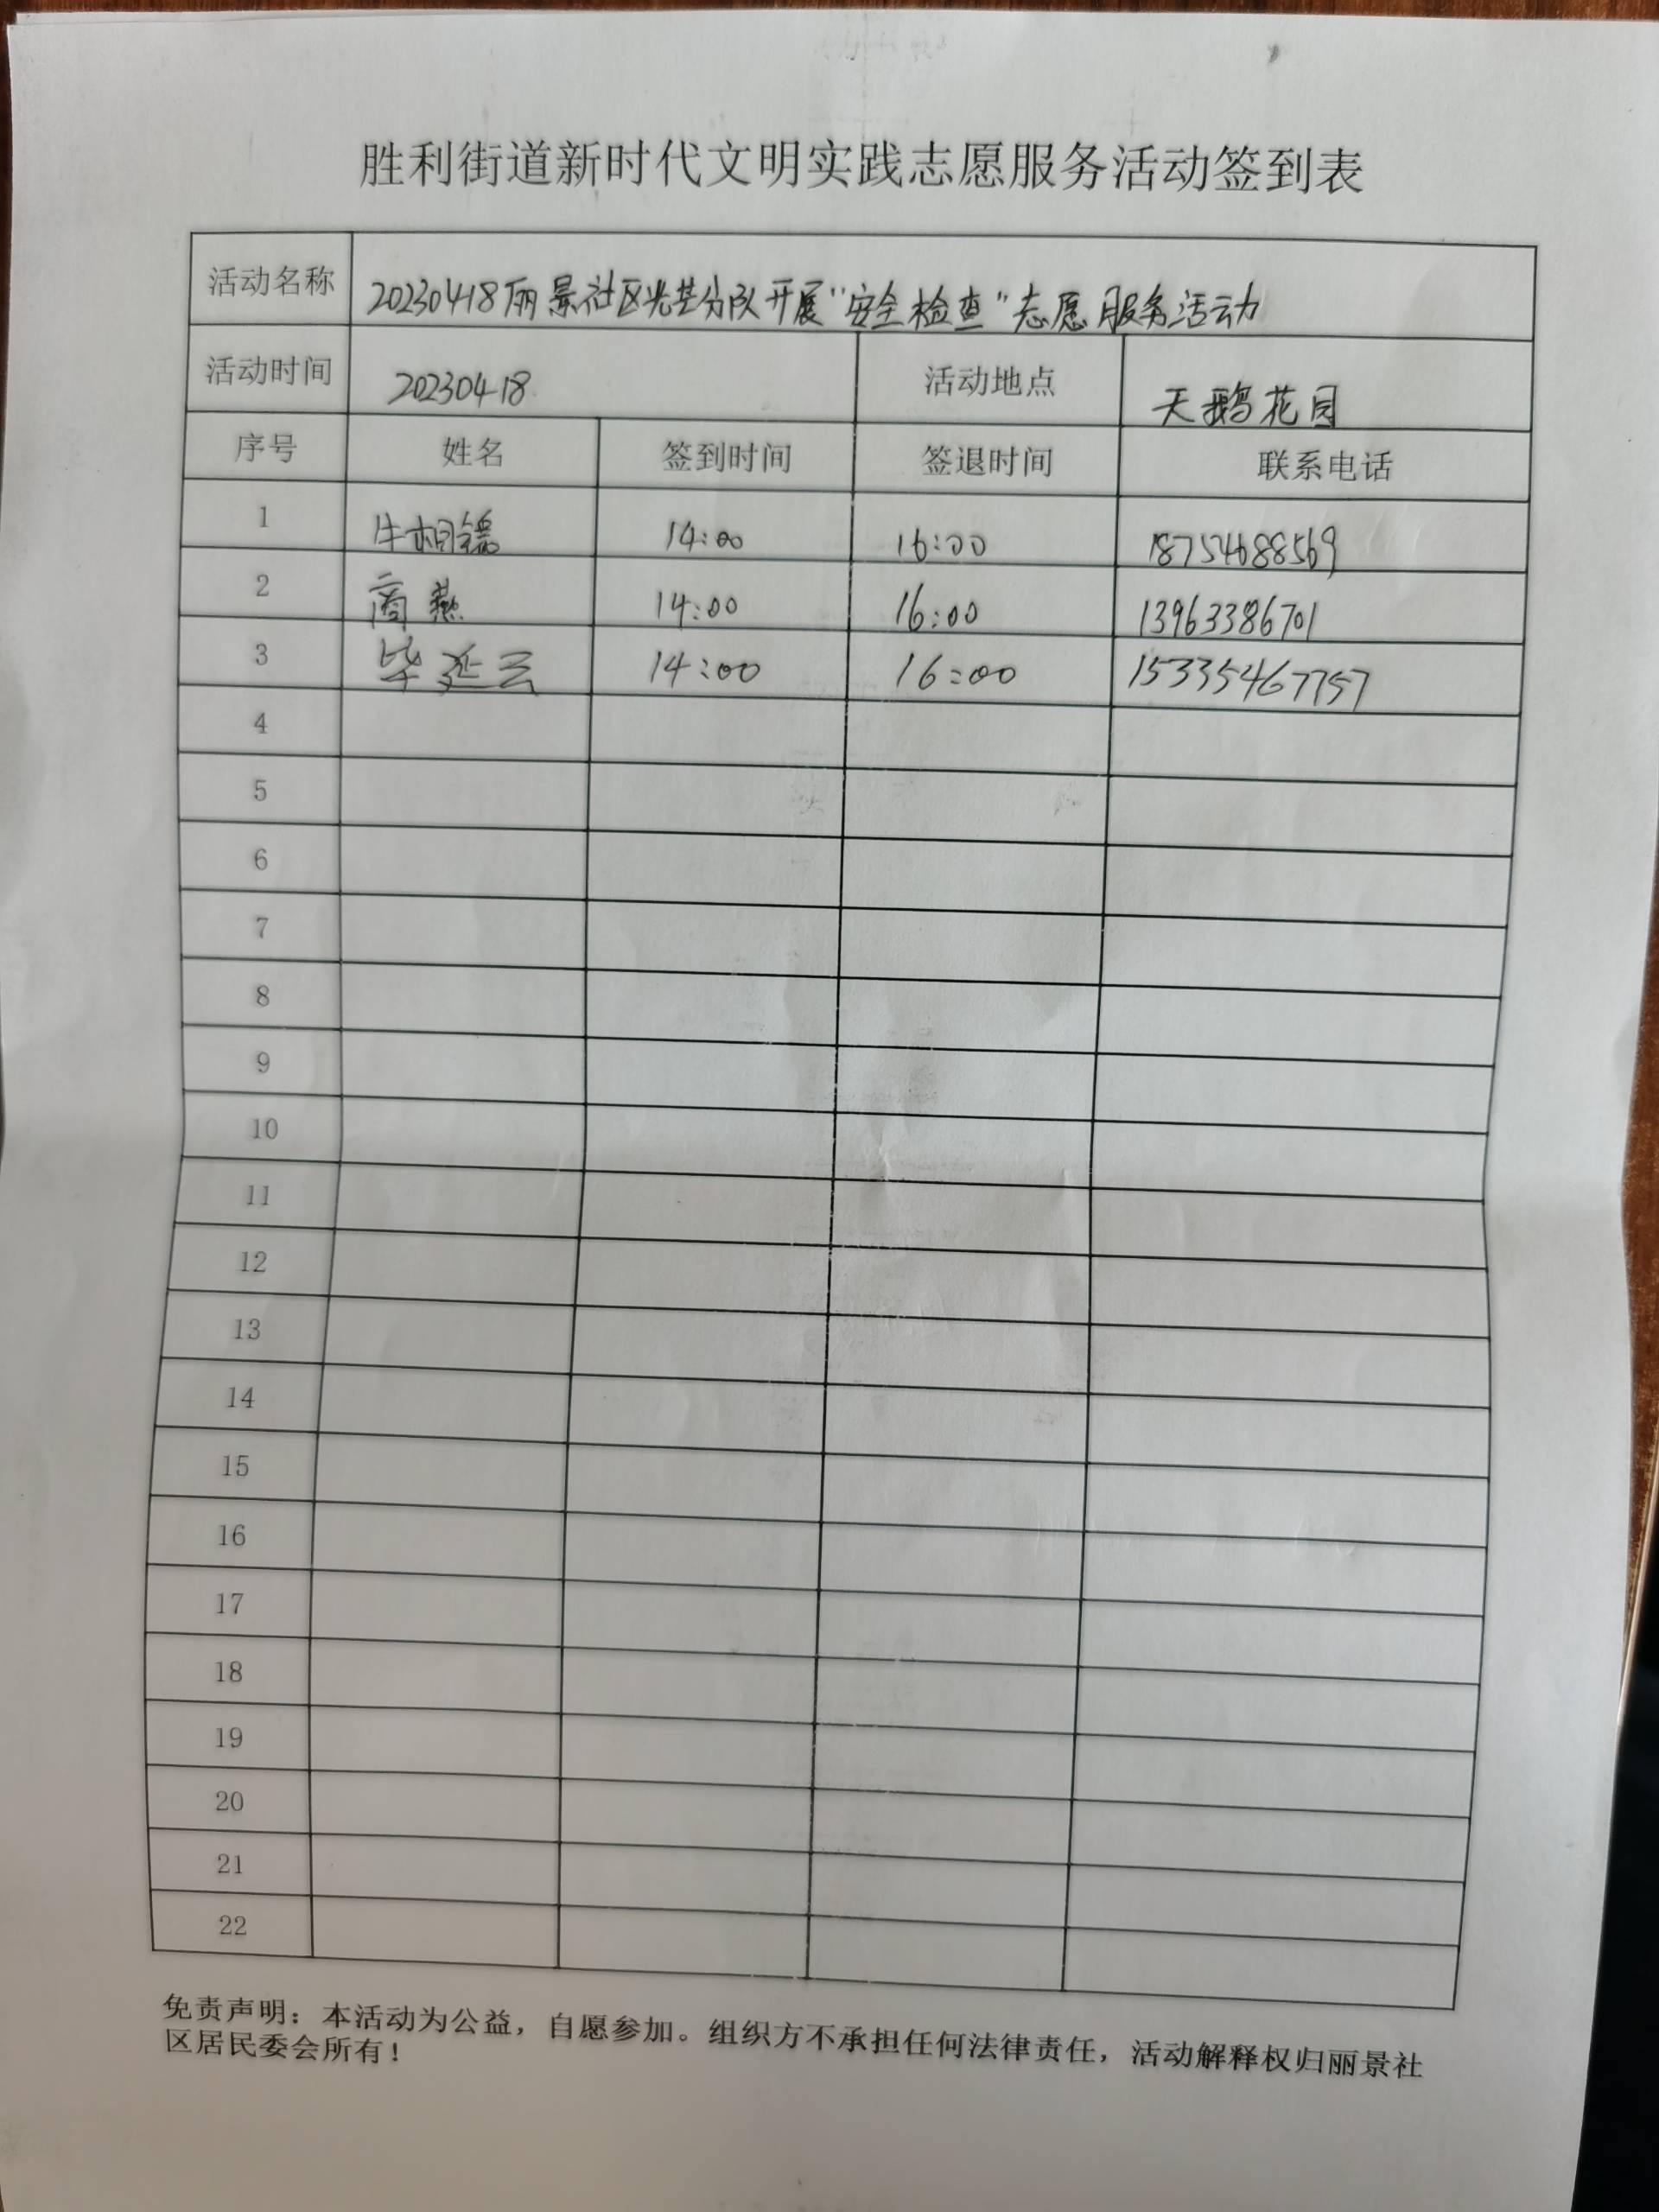 胜利街道新时代文明实践志愿服务活动签到表
活动名称 20230418丽景社区光芒分队开展"安全检查"志愿服务活动
活动时间 20230418 活动地点 天鹅花园
序号 姓名 签到时间 签退时间 联系电话
1 牛相锡 14:00 16:00 18754688569
2 商燕 14:00 16:00 13963386701
3 毕延云 14:00 16:00 15335467757
4
5
6
7
8
9
10
11
12
13
14
15
16
17
18
19
20
21
22
免责声明：本活动为公益，自愿参加。组织方不承担任何法律责任，活动解释权归丽景社
区居民委会所有！